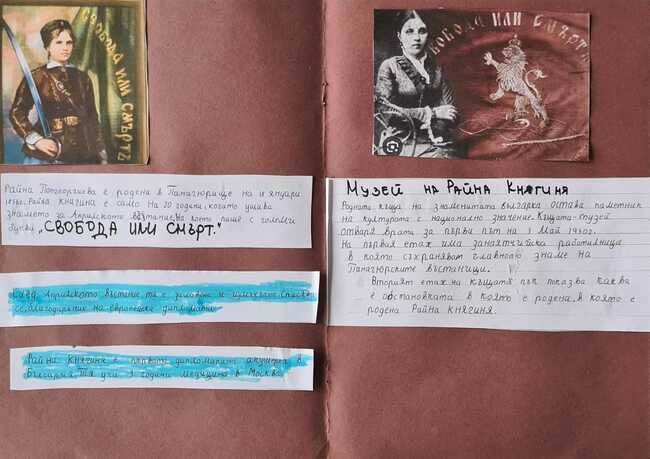 СВОБОДА ИЛИ СМЪРТЬ
Райна Попгеоргиева е родена в Панагюрище на 18 януари
Райна Княгиня е само на 20 години, когато ушива
знамето за Априлското въстание, на което пише с големи
букви „СВОБОДА ИЛИ СМЪРТ."
След Априлското въстание тя е заловена и
се, благодарение на европейски дипломати.
Райна Княгиня е първата дипломирана акушерка в
България. Тя учи 3 години медицина в Москва.
ВОБОДА ИЛИ СМЪРТЬ
Музей на Райна Княгиня
Родната къща на знаменитата българка остава паметник
на културата с национално значение. Къщата-музей
отваря врати за първи път на 1 май 1950г.
На първия етаж има занаятчийска работилница
в която съхраняват главното знаме на
Панагюрските въстаници.
Вторият етаж на къщата пък показва каква
е обстановката в която е родена, в която е
родена Райна Княгиня.